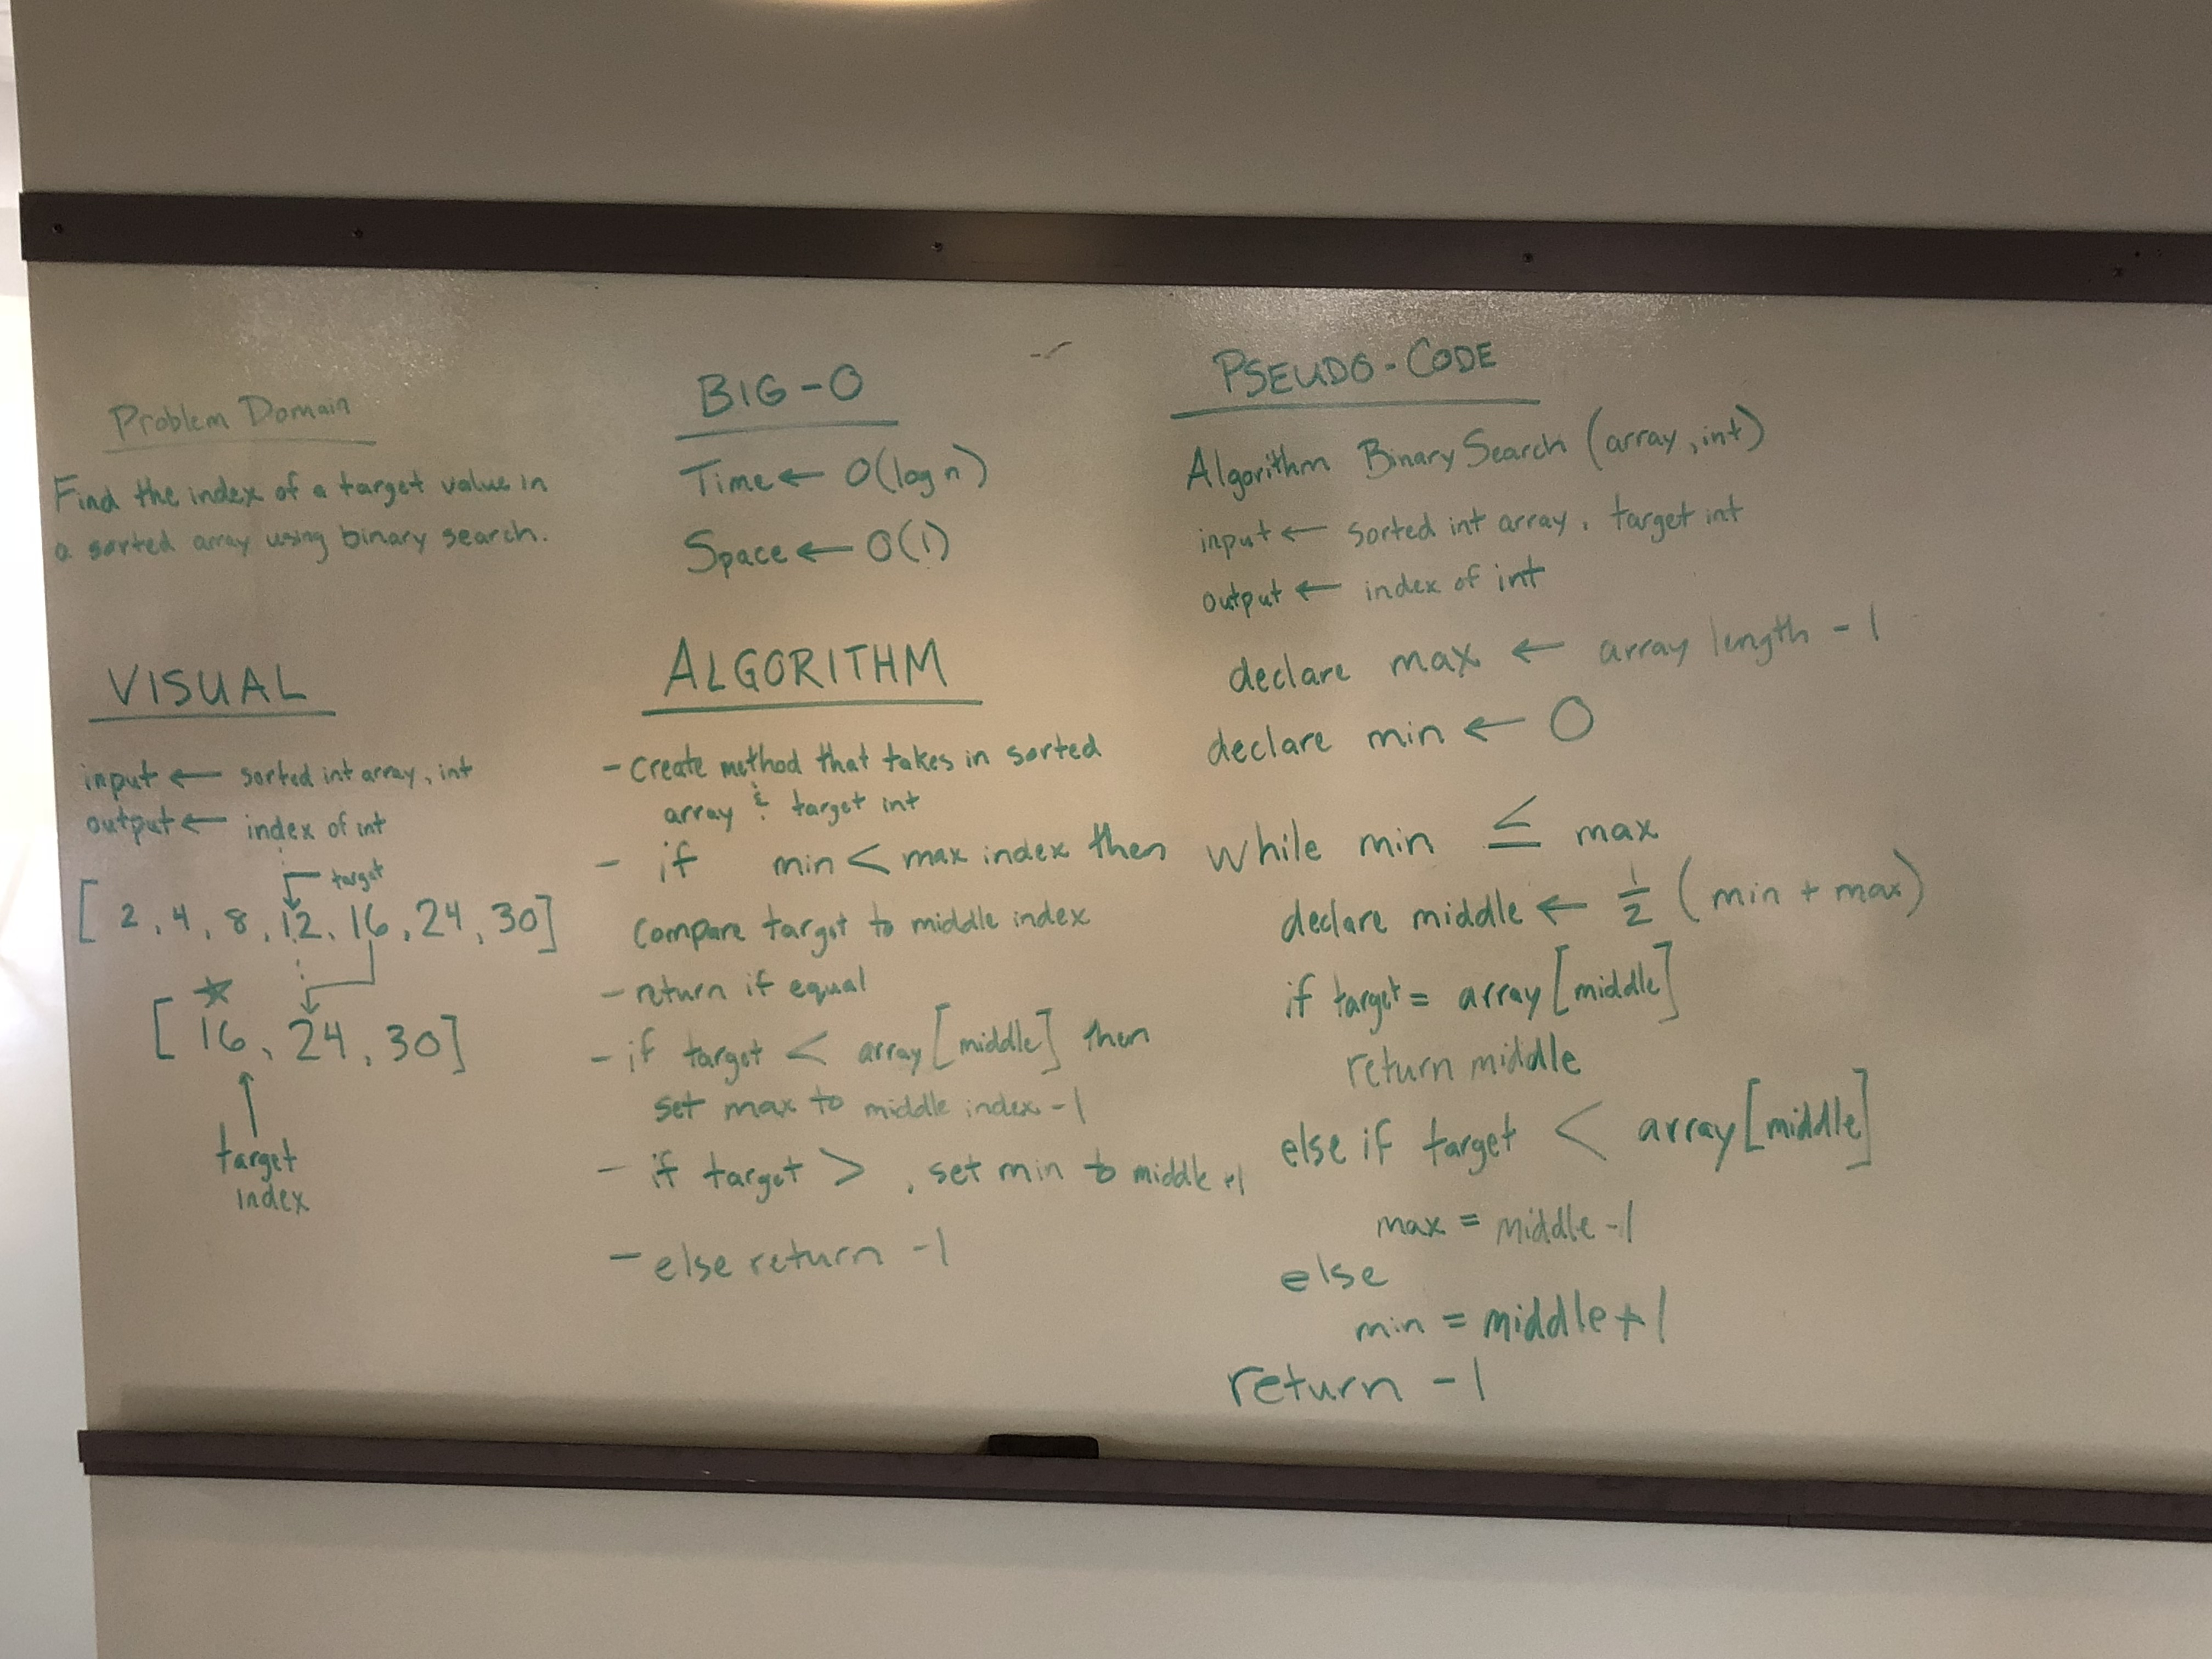 Problem Domain
Find the index of a target value in
a sorted array using binary search.
VISUAL
input ← sorted int array, int
output ← index of int
target
[ 2, 4, 8, 12, 16, 24, 30]
[ 16, 24, 30]
target
index
BIG-O
Time ← O(log n)
Space ← O(1)
ALGORITHM
- Create method that takes in sorted
array & target int
- if min < max index then
Compare target to middle index
- return if equal
- if target < array[middle] then
set max to middle index -1
- if target > , set min to middle +1
- else return -1
PSEUDO-CODE
Algorithm BinarySearch (array, int)
input ← sorted int array, target int
output ← index of int
declare max ← array length - 1
declare min ← 0
while min ≤ max
declare middle ← 1/2 (min + max)
if target = array[middle]
return middle
else if target < array[middle]
max = middle -1
else
min = middle + 1
return -1